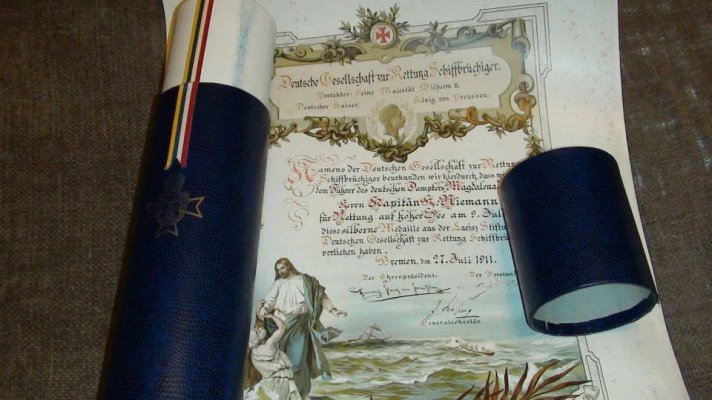 Deutsche Gesellschaft zur Rettung Schiffbrüchiger.
Protektor: Seine Majestät Wilhelm II.
Deutscher Kaiser König von Preussen.
Namens der Deutschen Gesellschaft zur Rettung
Schiffbrüchiger beurkunden wir hierdurch dass
dem Führer des deutschen Dampfers Magdalena
Herrn Kapitän Niemann
für Rettung auf hoher See am 9.
diese silberne Medaille aus der Laeisz
Deutschen Gesellschaft zur Rettung
verliehen haben.
Bremen, den 27. Juli 1911.
Der Ehrenpräsident: Der
Generalsekretär.